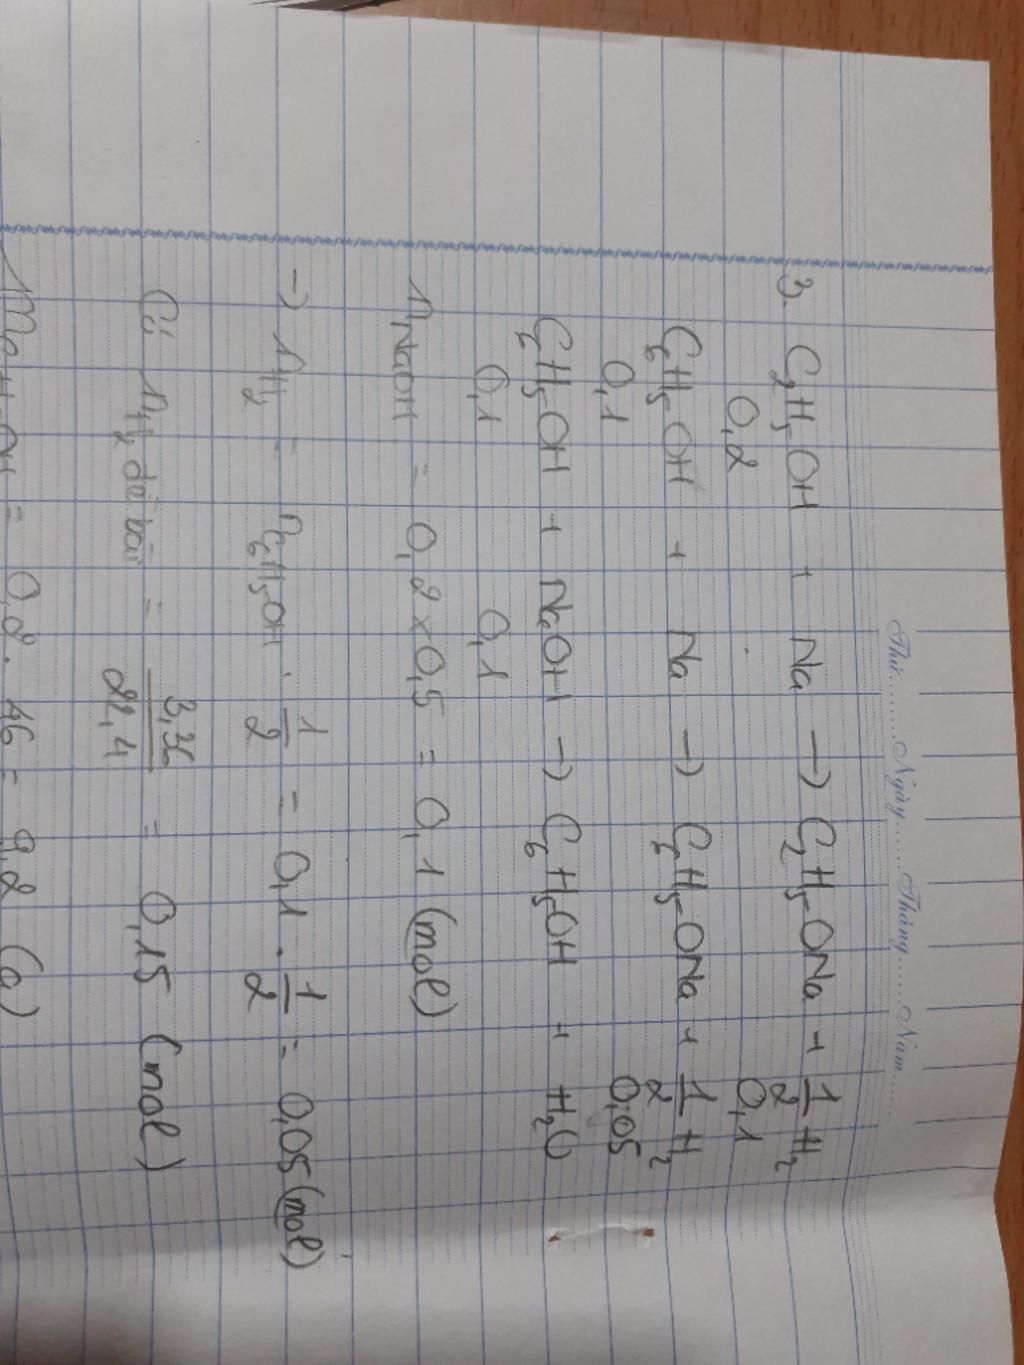 Thứ.......Ngày......Tháng......Năm.......
3. C₂H₅OH + Na → C₂H₅ONa + 1/2 H₂
0,2 0,1
C₆H₅OH + Na → C₆H₅ONa + 1/2 H₂
0,1 0,05
C₆H₅OH + NaOH → C₆H₅OH + H₂O
0,1 0,1
n NaOH = 0,2 × 0,5 = 0,1 (mol)
→ n H₂ = n C₆H₅OH . 1/2 = 0,1 . 1/2 = 0,05 (mol)
Có n H₂ đề bài = 3,36/22,4 = 0,15 (mol)
= 0,2. 46 = 9,2 (g)